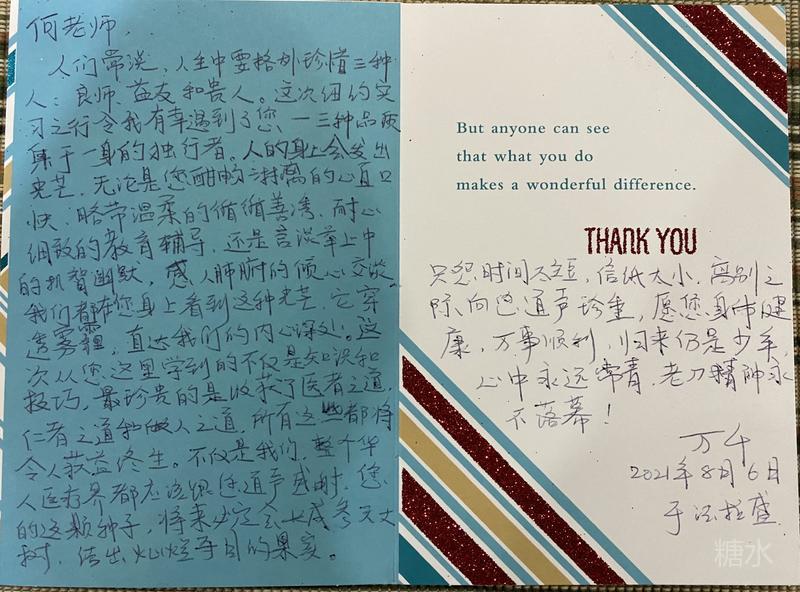 何老师,
人们常说,人生中要格外珍惜三种
人:良师、益友和贵人。这次纽约实
习之行令我有幸遇到了您,一三种品质
集于一身的独行者。人的身上会发出
光芒,无论是您酣畅淋漓的心直口
快,略带温柔的循循善诱,耐心
细致的教育辅导,还是言谈举止中
的机智幽默,感人肺腑的倾心交谈,
我们都在您身上看到这种光芒,它穿
透雾霾,直达我们的内心深处。这
次从您这里学到的不仅是知识和
技巧,最珍贵的是收获了医者之道,
仁者之道和做人之道,所有这些都将
令人获益终生。不仅是我们,整个华
人医疗界都应该跟您道声感谢,您
的这颗种子,将来必定会长成参天大
树,结出灿烂夺目的果实。
But anyone can see
that what you do
makes a wonderful difference.
THANK YOU
只怨时间太短,信纸太小,离别之
际向您道声珍重,愿您身体健
康,万事顺利,归来仍是少年,
心中永远常青,老刀精神永
不落幕!
万千
2021年8月6日
于法拉盛
糖水